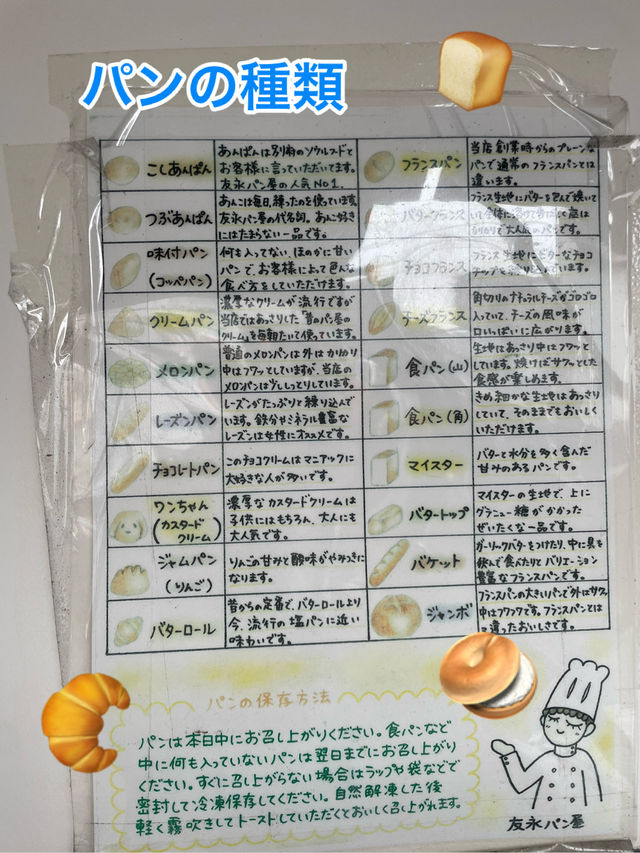 パンの種類
こしあんぱん
あんぱんは別府のソウルフードと
お客様に言っていただいてます。
友永パン屋の人気No1.
つぶあんぱん
あんこは毎日、練ったのを使っています。
友永パン屋の代名詞。あんこ好き
にはたまらない一品です。
味付パン
(コッペパン)
何も入ってない、ほのかに甘い
パンで、お客様によって色んな
食べ方をしていただけます。
クリームパン
濃厚なクリームが流行ですが
当店ではあっさりした「昔のパン屋の
クリーム」を毎朝たいて使っています。
メロンパン
普通のメロンパンは外はカリカリ
中はフワッとしていますが、当店の
メロンパンは少ししっとりしています。
レーズンパン
レーズンがたっぷりと練り込んで
います。鉄分やミネラル豊富な
レーズンは女性にオススメです。
チョコレートパン
このチョコクリームはマニアックに
大好きな人が多いです。
ワンちゃん
(カスタード
クリーム)
濃厚なカスタードクリームは
子供にはもちろん、大人にも
大人気です。
ジャムパン
(りんご)
りんごの甘みと酸味がやみつきに
なります。
バターロール
昔からの定番で、バターロールより
今、流行の塩パンに近い
味わいです。
フランスパン
当店創業時からのプレーンな
パンで通常のフランスパンとは
違います。
バターフランス
フランス生地にバターを包んで焼いて
カリカリで大人気のパンです。
チョコフランス
フランス生地にビターなチョコ
チーズフランス
角切りのナチュラルチーズがゴロゴロ
入っていて、チーズの風味が
口いっぱいに広がります。
食パン(山)
生地はあっさり中はフワッと
しています。焼けばサクッとした
食感が楽しめます。
食パン(角)
きめ細かな生地はあっさり
していて、そのままでもおいしく
いただけます。
マイスター
バターと水分を多く含んだ
甘みのあるパンです。
バタートップ
マイスターの生地で、上に
グラニュー糖がかかった
ぜいたくな一品です。
バケット
ガーリックバターをつけたり、中に具を
挟んで食べたりとバリエーション
豊富なフランスパンです。
ジャンボ
フランスパンの大きいパンで外はサクッ
中はフワフワです。フランスパンとは
違ったおいしさです。
パンの保存方法
パンは本日中にお召し上がりください。食パンなど
中に何も入っていないパンは翌日までにお召し上がり
ください。すぐに召し上がらない場合はラップや袋などで
密封して冷凍保存してください。自然解凍した後
軽く霧吹きしてトーストしていただくとおいしく召し上がれます。
友永パン屋